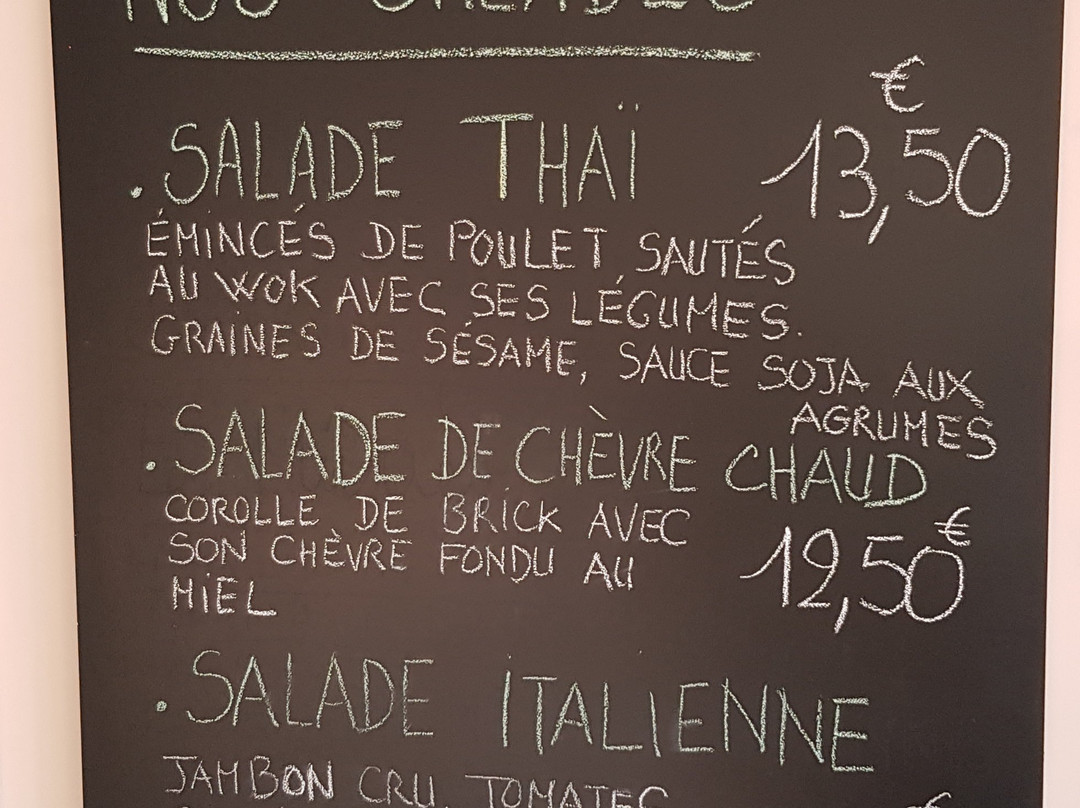 NOS SALADES
. SALADE THAÏ 13,50 €
ÉMINCÉS DE POULET SAUTÉS
AU WOK AVEC SES LÉGUMES.
GRAINES DE SÉSAME, SAUCE SOJA AUX
AGRUMES
. SALADE DE CHÈVRE CHAUD
COROLLE DE BRICK AVEC
SON CHÈVRE FONDU AU
MIEL
12,50 €
. SALADE ITALIENNE
JAMBON CRU, TOMATES
€